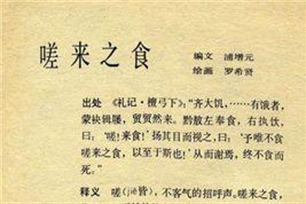 嗟来之食
编文 浦增元
绘画 罗希贤
出处 《礼记·檀弓下》："齐大饥，……有饿者，
蒙袂辑屦，贸贸然来。黔敖左奉食，右执饮，
曰：'嗟！来食！'扬其目而视之，曰：'予唯不食
嗟来之食，以至于斯也！'从而谢焉，终不食而
死。"
释义 嗟（jiē皆），不客气的招呼声。嗟来之食，